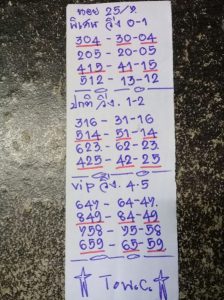 ทอย 25/x
พิเศษ วิ่ง 0-1
304 - 30-04
205 - 20-05
415 - 41-15
512 - 13-12
ปกติ วิ่ง. 1-2
316 - 31-16
514 - 51-14
623 - 62-23
425 - 42-25
vip วิ่ง. 4-5
649 - 64-49.
849 - 84-49
958 - 95-58
659 - 65-59